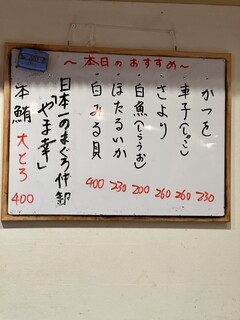 ～本日のおすすめ～
・かつを 230
・車子(しゃこ) 260
・さより 260
・白魚(しらうお) 200
・ほたるいか 230
・白みる貝 400
日本一のまぐろ仲卸
「やま幸」
本鮪 大とろ 400